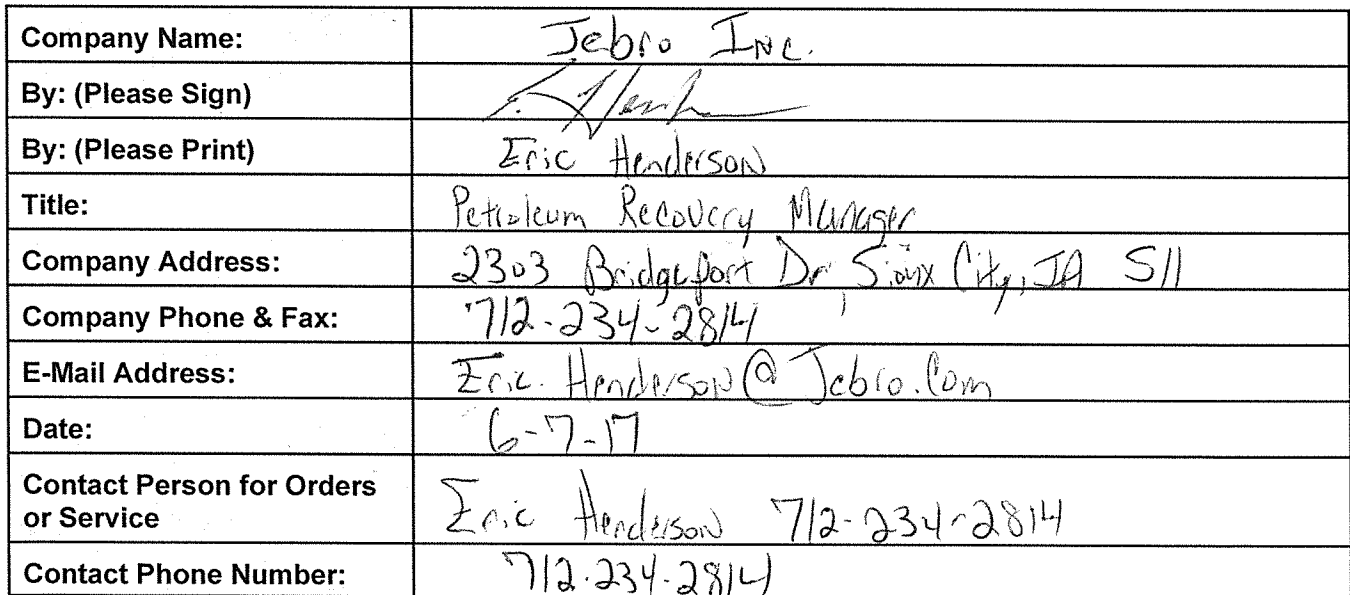 Company Name: Jebro Inc.
By: (Please Sign)
By: (Please Print) Eric Henderson
Title: Petroleum Recovery Manager
Company Address: 2303 Bridgeport Dr, Sioux City, IA 511
Company Phone & Fax: 712-234-2814
E-Mail Address: Eric.Henderson@Jebro.Com
Date: 6-7-17
Contact Person for Orders
or Service Eric Henderson 712-234-2814
Contact Phone Number: 712-234-2814